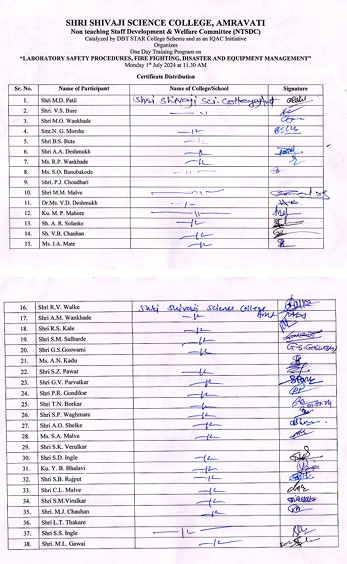 SHRI SHIVAJI SCIENCE COLLEGE, AMRAVATI
Non teaching Staff Development & Welfare Committee (NTSDC)
Catalyzed by DBT STAR College Scheme and as an IQAC Initiative
Organizes
One Day Training Program on
"LABORATORY SAFETY PROCEDURES, FIRE FIGHTING, DISASTER AND EQUIPMENT MANAGEMENT"
Monday 1st July 2024 at 11.30 AM
Certificate Distribution
Sr. No. Name of Participant Name of College/School Signature
1. Shri M.D. Patil Shri Shivaji Sci. College
2. Shri. V.S. Bure
3. Shri M.O. Wankhade
4. Smt.N. G. Morshe
5. Shri B.S. Bute
6. Shri A.A. Deshmukh
7. Ms. R.P. Wankhade
8. Ms. S.O. Banubakode
9. Shri. P.J. Choudhari
10. Shri M.M. Malve
11. Dr.Ms. V.D. Deshmukh
12. Ku. M. P. Mahore
13. Sh. A. R. Solanke
14. Sh. V.B. Chauhan
15. Ms. J.A. Mate
16. Shri R.V. Walke Shri Shivaji Science College
17. Shri A.M. Wankhade
18. Shri R.S. Kale
19. Shri S.M. Salbarde
20. Shri G.S.Goswami G.S.Goswami
21. Ms. A.N. Kadu
22. Shri S.Z. Pawar
23. Shri G.V. Parvatkar
24. Shri P.R. Gondikar
25. Shri T.N. Borkar
26. Shri S.P. Waghmare
27. Shri A.O. Shelke
28. Ms. S.A. Malve
29. Shri S.K. Verulkar
30. Shri S.D. Ingle
31. Ku. Y. B. Bhalavi
32. Shri S.B. Rajput
33. Shri C.L. Malve
34. Shri S.M.Virulkar
35. Shri. M.J. Chauhan
36. Shri L.T. Thakare
37. Shri S.S. Ingle
38. Shri. M.L. Gawai